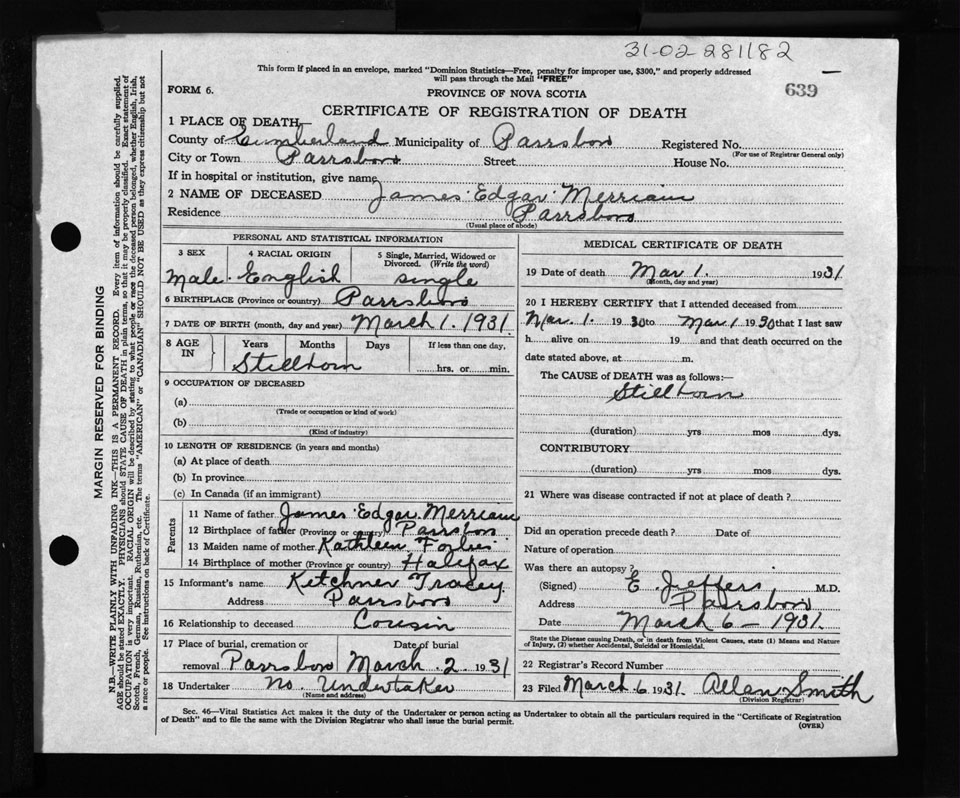 31-02-281182
This form if placed in an envelope, marked "Dominion Statistics—Free, penalty for improper use, $300," and properly addressed
will pass through the Mail "FREE"
639
FORM 6.
PROVINCE OF NOVA SCOTIA
CERTIFICATE OF REGISTRATION OF DEATH
1 PLACE OF DEATH—
County of Cumberland Municipality of Parrsboro Registered No.
(For use of Registrar General only)
City or Town Parrsboro Street House No.
If in hospital or institution, give name
2 NAME OF DECEASED James Edgar Merriam
Residence Parrsboro
(Usual place of abode)
PERSONAL AND STATISTICAL INFORMATION
3 SEX 4 RACIAL ORIGIN 5 Single, Married, Widowed or
Divorced. (Write the word)
Male English single
6 BIRTHPLACE (Province or country) Parrsboro
7 DATE OF BIRTH (month, day and year) March 1. 1931.
8 AGE IN Years Months Days If less than one day,
Stillborn hrs. or min.
9 OCCUPATION OF DECEASED
(a)
(Trade or occupation or kind of work)
(b)
(Kind of industry)
10 LENGTH OF RESIDENCE (in years and months)
(a) At place of death
(b) In province
(c) In Canada (if an immigrant)
Parents
11 Name of father James Edgar Merriam
12 Birthplace of father (Province or country) Parrsboro
13 Maiden name of mother Kathleen Forbes
14 Birthplace of mother (Province or country) Halifax
15 Informant's name Ketchner Tracey
Address Parrsboro
16 Relationship to deceased Cousin
17 Place of burial, cremation or Date of burial
removal Parrsboro March 2 1931
18 Undertaker no undertaker
(Name and address)
MEDICAL CERTIFICATE OF DEATH
19 Date of death Mar 1. 1931
(Month, day and year)
20 I HEREBY CERTIFY that I attended deceased from
Mar. 1. 1930 to Mar. 1 1930 that I last saw
h alive on 19 and that death occurred on the
date stated above, at m.
The CAUSE of DEATH was as follows:—
Stillborn
(duration) yrs mos dys.
CONTRIBUTORY
(duration) yrs mos dys.
21 Where was disease contracted if not at place of death?
Did an operation precede death? Date of
Nature of operation
Was there an autopsy?
(Signed) E. Jeffers M.D.
Address Parrsboro
Date March 6 - 1931
State the Disease causing Death, or in death from Violent Causes, state (1) Means and Nature
of Injury, (2) whether Accidental, Suicidal or Homicidal.
22 Registrar's Record Number
23 Filed March 6 1931. Allan Smith
(Division Registrar)
Sec. 46—Vital Statistics Act makes it the duty of the Undertaker or person acting as Undertaker to obtain all the particulars required in the "Certificate of Registration
of Death" and to file the same with the Division Registrar who shall issue the burial permit.
(OVER)
MARGIN RESERVED FOR BINDING
N.B.—WRITE PLAINLY WITH UNFADING INK—THIS IS A PERMANENT RECORD. Every item of information should be carefully supplied.
AGE should be stated EXACTLY. PHYSICIANS should STATE CAUSE OF DEATH in plain terms, so that it may be properly classified. Exact statement of
OCCUPATION is very important. RACIAL ORIGIN will be described by stating to what people or race the deceased person belonged, whether English, Irish,
Scotch, French, German, Russian, Ruthenian, etc. The terms "AMERICAN" or "CANADIAN" SHOULD NOT BE USED as they express citizenship but not
a race or people. See instructions on back of Certificate.